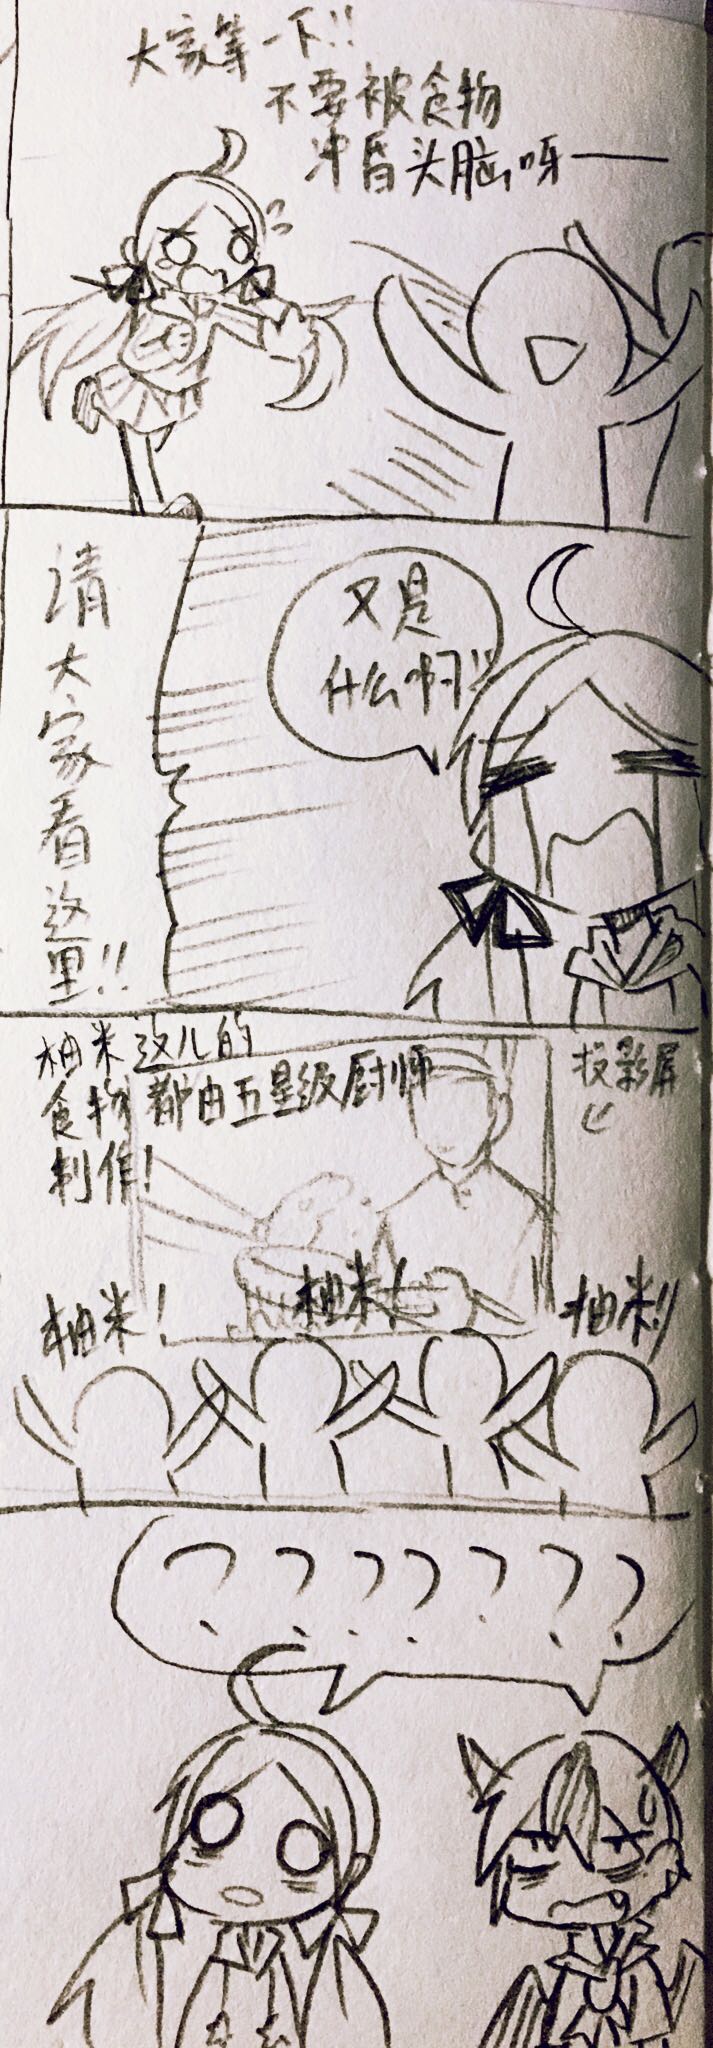 大家等一下!!
不要被食物
冲昏头脑呀——
又是
什么啊!!
请大家看这里!!
柚米这儿的
食物都由五星级厨师
制作!
投影屏
柚米!
柚米!
柚米!!
???????